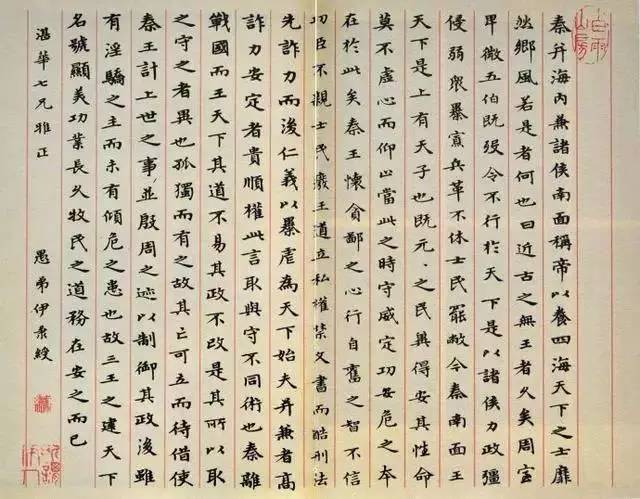 秦并海内兼諸侯南面稱帝以養四海天下之士靡
然鄉風若是者何也曰近古之無王者久矣周室
卑微五伯既歿令不行於天下是以諸侯力政彊
侵弱眾暴寡兵革不休士民罷敝今秦南面王
天下是上有天子也既元〻之民冀得安其性命
莫不虛心而仰上當此之時守威定功安危之本
在於此矣秦王懷貪鄙之心行自奮之智不信
功臣不親士民廢王道立私權禁文書而酷刑法
先詐力而後仁義以暴虐為天下始夫并兼者高
詐力安定者貴順權此言取與守不同術也秦離
戰國而王天下其道不易其政不改是其所以取
之守之者異也孤獨而有之故其亡可立而待借使
秦王計上世之事並殷周之迹以制御其政後雖
有淫驕之主而未有傾危之患也故三王之建天下
名號顯美功業長久牧民之道務在安之而已
湛華七兄雅正 愚弟伊秉綬